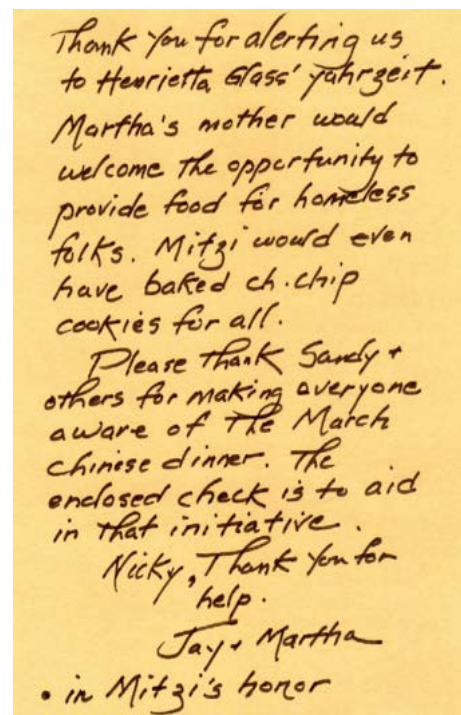 Thank you for alerting us
to Henrietta Glass' yahrzeit.
Martha's mother would
welcome the opportunity to
provide food for homeless
folks. Mitzi would even
have baked ch.chip
cookies for all.
Please thank Sandy +
others for making everyone
aware of The March
chinese dinner. The
enclosed check is to aid
in that initiative.
Nicky, Thank you for
help.
Jay + Martha
• in Mitzi's honor